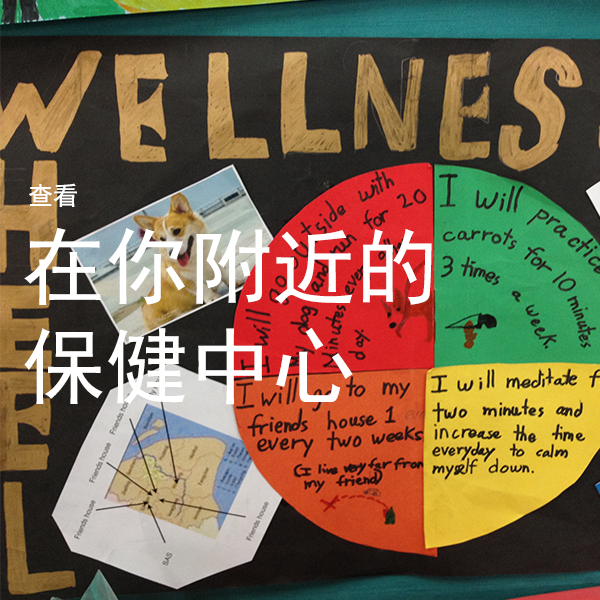 WELLNESS
WHEEL
查看
在你附近的
保健中心
I will go outside with
my dog and run for 20
minutes every
day.
I will practice
carrots for 10 minutes
3 times a week.
I will go to my
friends house 1
every two weeks
(I live very far from
my friend)
I will meditate f
two minutes and
increase the time
everyday to calm
myself down.
Friends house
Friends house
Friends house
Friends house
SAS